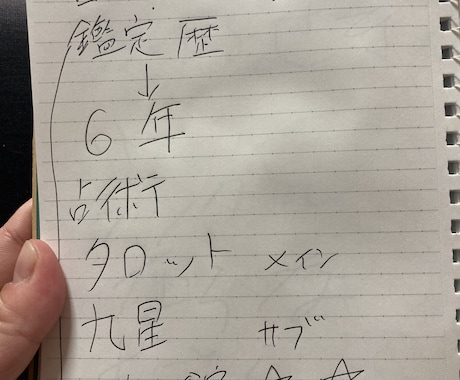 鑑定歴
↓
6年
占術
タロット メイン
九星 サブ